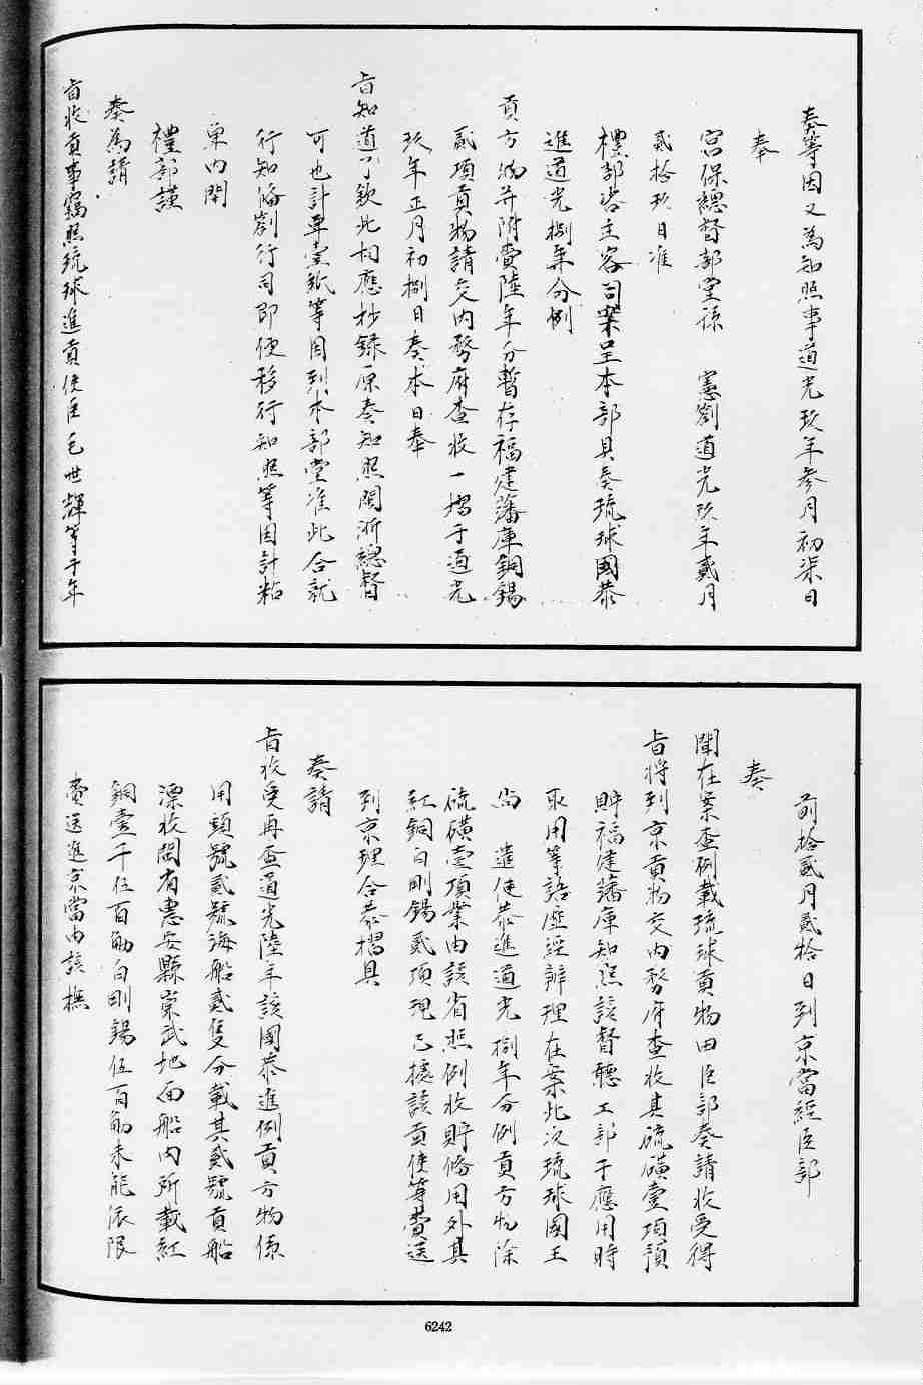 奏等因又為知照事道光玖年參月初柒日
奉
宮保總督部堂孫　憲劄道光玖年貳月
貳拾玖日准
禮部咨主客司案呈本部具奏琉球國恭
進道光捌年分例
貢方物并附費陸年分暫存福建藩庫銅錫
貳項貢物請交內務府查收一摺于道光
玖年正月初捌日奏本日奉
旨知道了欽此相應抄錄原奏知照閩浙總督
可也計單壹紙等因到本部堂准此合就
行知備劄行司即便移行知照等因計粘
單內開
禮部謹
奏為請
旨收貢事竊照琉球進貢使臣毛世輝等于年
前拾貳月貳拾日到京當經臣部
奏
聞在案查例載琉球貢物由臣部奏請收受得
旨將到京貢物交內務府查收其硫磺壹項預
貯福建藩庫知照該督聽工部于應用時
取用等語歷經辦理在案此次琉球國王
尚　遣使恭進道光捌年分例貢方物除
硫磺壹項業由該省照例收貯備用外其
紅銅白剛錫貳項現已據該貢使等費送
到京理合恭摺具
奏請
旨收受再查道光陸年該國恭進例貢方物係
用頭號貳號海船貳隻分載其貳號貢船
漂收閩省惠安縣崇武地面船內所載紅
銅壹千伍百觔白剛錫伍百觔未能依限
費送進京當由該撫
6242